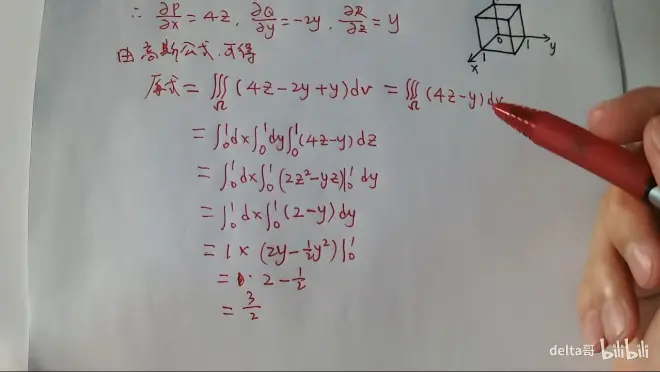 ∴ ∂P/∂x = 4z, ∂Q/∂y = -2y, ∂R/∂z = y
由高斯公式,可得
原式 = ∭_Ω (4z-2y+y)dv = ∭_Ω (4z-y)dv
= ∫₀¹dx∫₀¹dy∫₀¹(4z-y)dz
= ∫₀¹dx∫₀¹(2z²-yz)|₀¹ dy
= ∫₀¹dx∫₀¹(2-y)dy
= 1×(2y-½y²)|₀¹
= 1·2-½
= 3/2
x
1
0
1
y
delta哥 bilibili